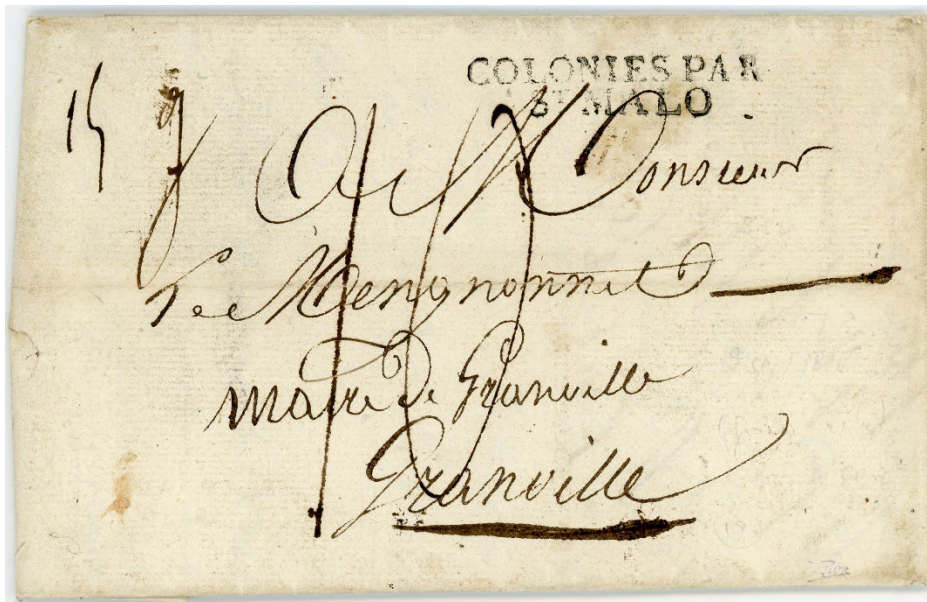 COLONIES PAR
ST MALO
15
A Monsieur
Le Mengnonnet
maire de Granville
Granville